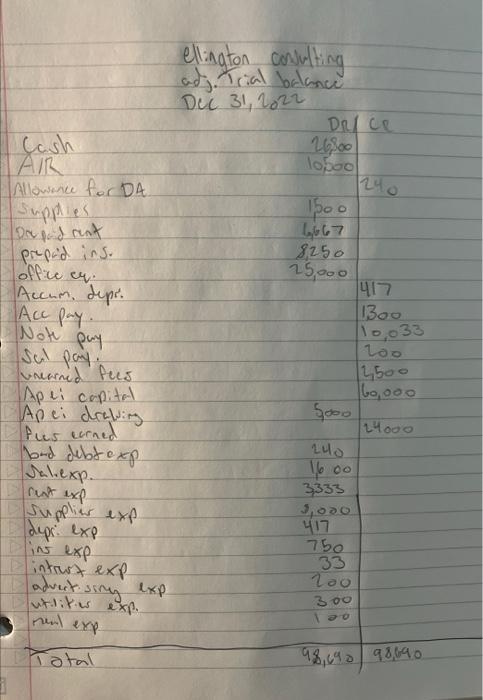 ellington consulting
adj. Trial balance
Dec 31, 2022
DR CR
Cash 26,800
A/R 10,500
Allowance for DA 240
Supplies 1500
Prepaid rent 6,667
prepaid ins. 8,250
office eq. 25,000
Accum. depr. 417
Acc pay. 1300
Note pay 10,033
Sal pay. 200
unearned fees 2,500
Apei capital 60,000
Apei drawing 5,000
Fees earned 24000
bad debt exp 240
Sal. exp. 1600
rent exp 3,333
Supplies exp 8,000
depr. exp 417
ins exp 750
intrust exp 33
advertising exp 200
utilities exp. 300
exp 100
Total 98,690 98,690